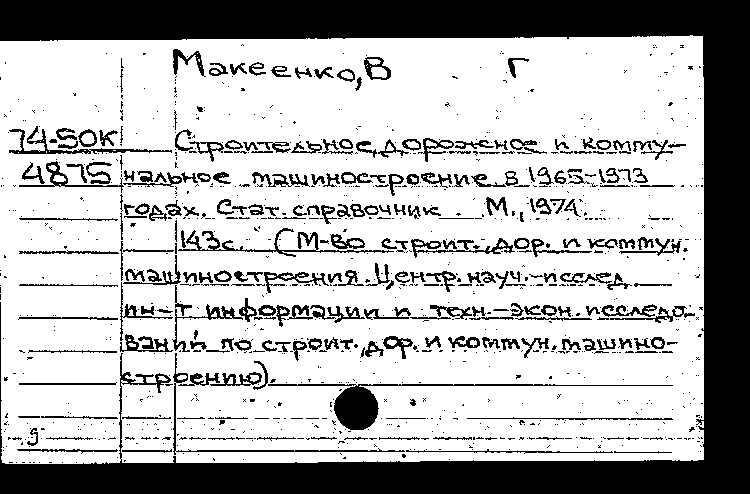 Макеенко, В Г
74-50К Строительное, дорожное и комму-
4875 нальное машиностроение в 1965-1973
годах. Стат. справочник. М., 1974.
143с. (М-во строит., дор. и коммун.
машиностроения. Центр. науч.-исслед.
ин-т информации и техн.-экон. исследо-
ваний по строит., дор. и коммун. машино-
строению).
9